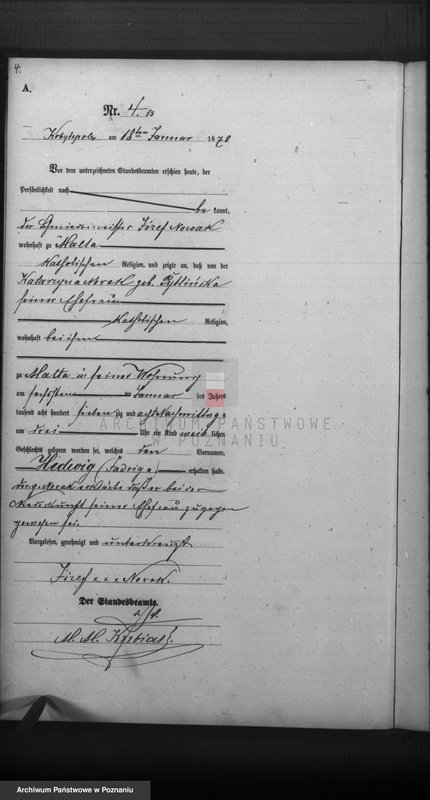 4.
A.
Nr. 4.
Kobylepole am 18ten Januar 1878
Vor dem unterzeichneten Standesbeamten erschien heute, der
Persönlichkeit nach
be kannt,
der Schmiedemeister Józef Nowak
wohnhaft zu Malta
katholischen Religion, und zeigte an, daß von der
Katarzyna Nowak geb.
seiner Ehefrau
katholischen Religion,
wohnhaft bei ihm
zu Malta in seiner Wohnung
am sechsten Januar des Jahres
tausend acht hundert sieben zig und acht Nachmittags
um drei Uhr ein Kind weib lichen
Geschlechts geboren worden sei, welches den Vornamen
Hedwig (Jadviga) erhalten habe.
der p. Nowak erklärte daßer bei der
Niederkunft seiner Ehefrau zugegen
gewesen sei.
Vorgelesen, genehmigt und unterkreuzt
Józef x x x Nowak.
Der Standesbeamte.
ARCHIWUM PAŃSTWOWE
W POZNANIU
Archiwum Państwowe w Poznaniu